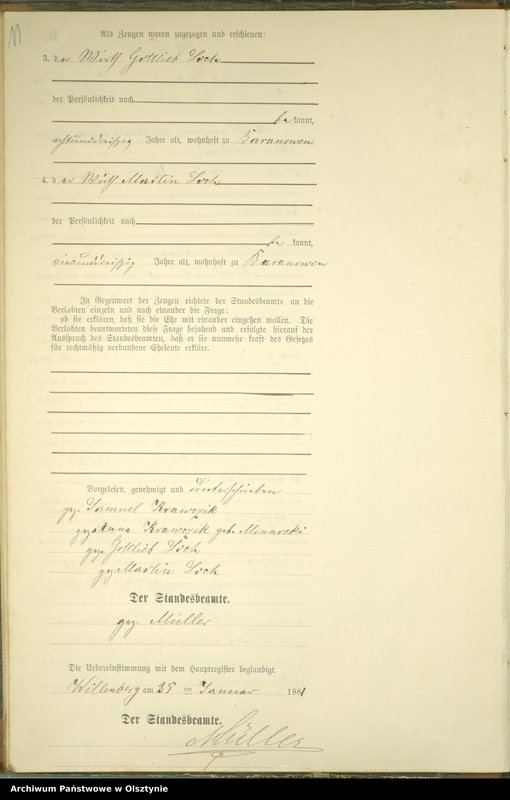 11
Als Zeugen waren zugezogen und erschienen:
3. der Wirth Gottlieb Loch
der Persönlichkeit nach
be kannt,
achtunddreißig Jahre alt, wohnhaft zu Baranowen
4. der Wirth Martin Loch
der Persönlichkeit nach
be kannt,
vierunddreißig Jahre alt, wohnhaft zu Baranowen
In Gegenwart der Zeugen richtete der Standesbeamte an die
Verlobten einzeln und nach einander die Frage:
ob sie erklären, daß sie die Ehe mit einander eingehen wollen. Die
Verlobten beantworteten diese Frage bejahend und erfolgte hierauf der
Ausspruch des Standesbeamten, daß er sie nunmehr kraft des Gesetzes
für rechtmäßig verbundene Eheleute erkläre.
Vorgelesen, genehmigt und unterschrieben
gez. Samuel Krawczik
gez. Anna Krawczik geb. Minarski
gez. Gottlieb Loch
gez. Martin Loch
Der Standesbeamte.
gez. Müller
Die Uebereinstimmung mit dem Hauptregister beglaubigt.
Willenberg am 25 ten Januar 1881
Der Standesbeamte.
Müller
Archiwum Państwowe w Olsztynie